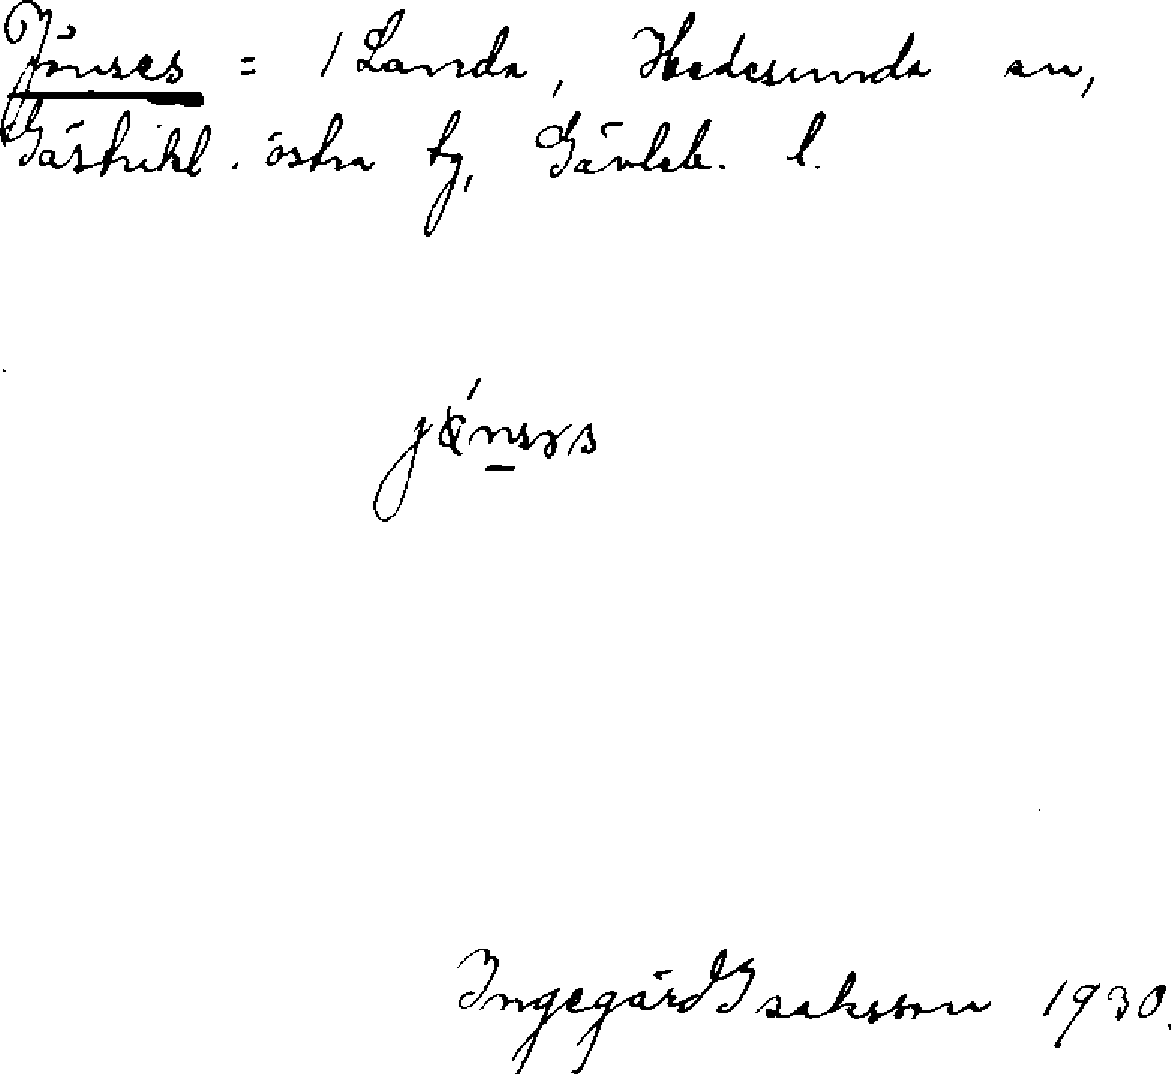 Jönses = 1 Landa, Hedesunda sn,
Gästrikl. östra tg, Gävleb. l.
Ingegärd Isaksson 1930.